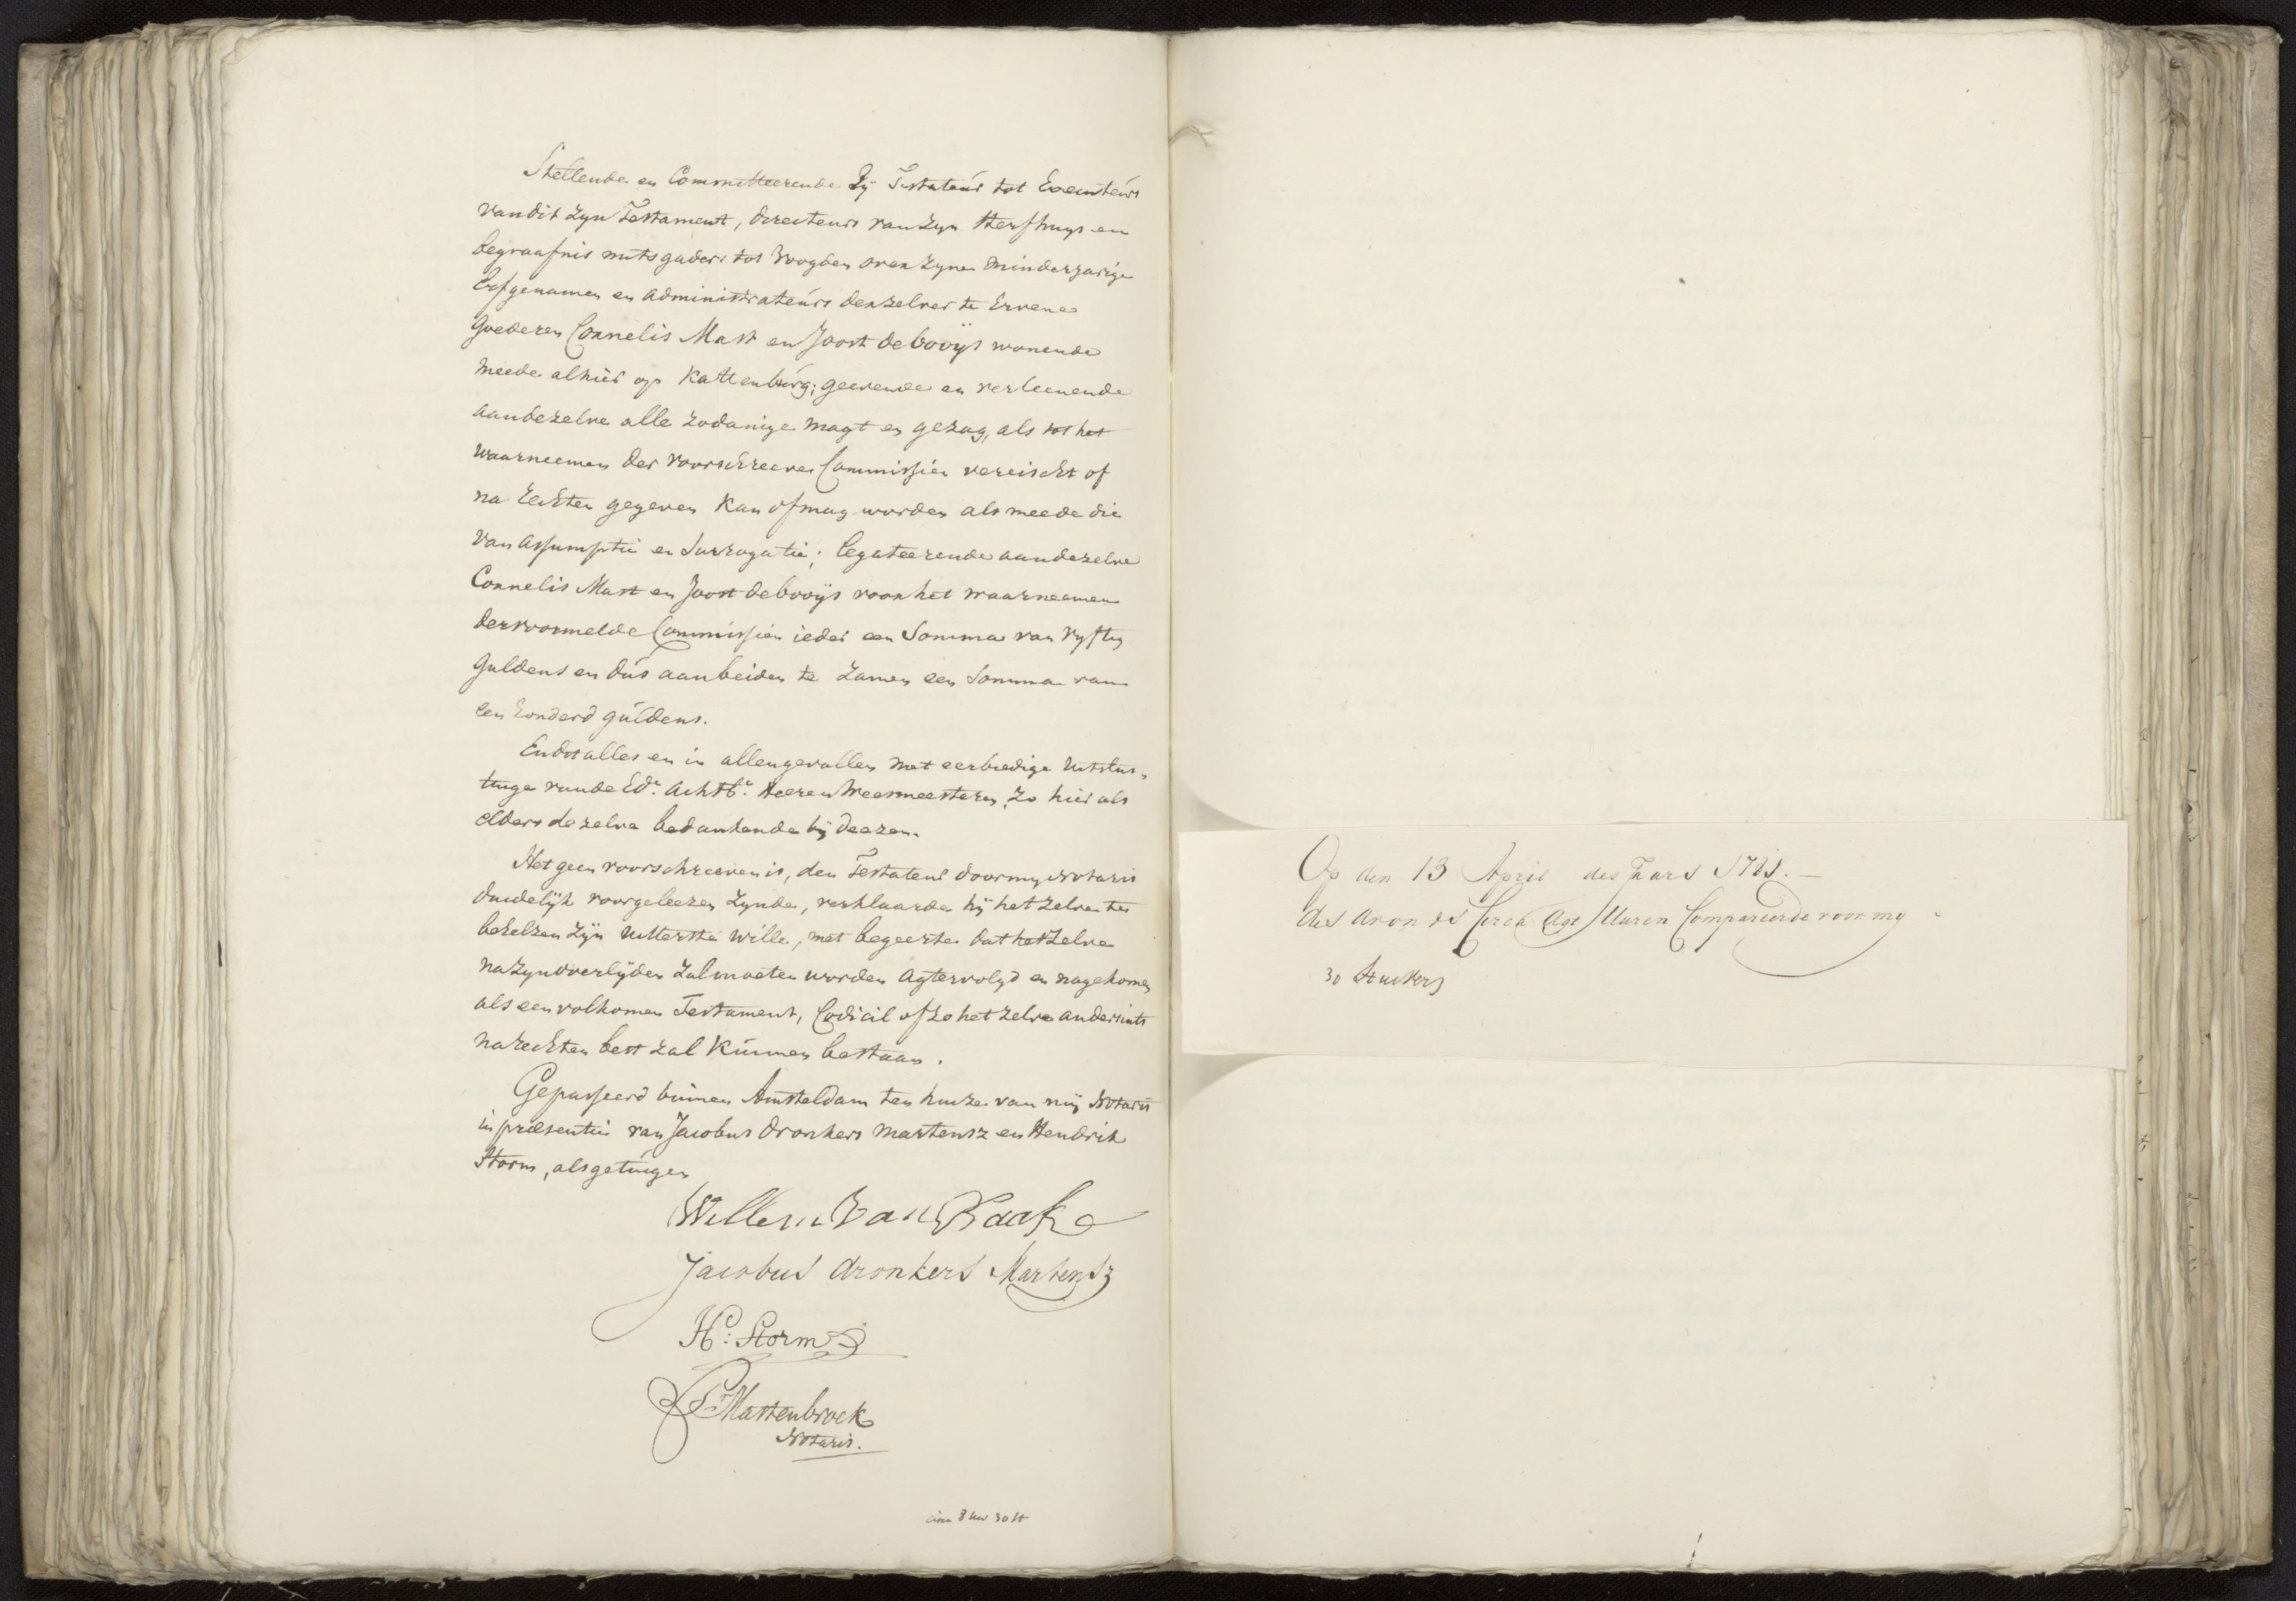 Stellende en Committeerende Hij Testateur tot Executeurs
van dit zyn Testament, directeurs van zyn sterfhuys en
begraafnis mitsgaders tot Voogden over zyne minderjarige
Erfgenamen en administrateurs derzelver te Ervene
Goederen Cornelis Mast en Joost de booijs wonende
meede alhier op Kattenburg; geevende en verleenende
aan dezelve alle zodanige magt en gezag, als tot het
waarneemen der voorschreeve Commissien vereischt of
na rechten gegeven kan of mag worden als meede die
van assumptie en Surrogatie; legateerende aan dezelve
Cornelis Mast en Joost de booijs voor het waarneemen
der voormelde Commissien ieder een Somma van vyftig
Guldens en dus aan beiden te zamen een Somma van
een honderd guldens.
En dit alles en in allen gevallen met eerbiedige Uitslui,,
tinge van de Ed.e Achtb.e Heeren Weesmeesteren, zo hier als
elders dezelve bedankende bij deezen.
Het geen voorschreeven is, den Testateur door my Notaris
duidelijk voorgeleezen zynde, verklaarde hij het zelve te
behelzen zijn uitterste wille, met begeerte dat het zelve
na zyn overlijden zal moeten worden agtervolgd en nagekomen
als een volkomen Testament, Codicil of zo het zelve andersints
na rechten best zal kunnen bestaan.
Gepasseerd binnen Amsteldam ten huize van mij Notaris
in præsentie van Jacobus Dronkers Martensz en Hendrik
Storm, als getuigen
Willem Van Raake
Jacobus dronkers Martensz
H: Storm
Mastenbroek
Notaris.
circa 8 uur 30 st
Op den 13 April des Jaars
des avonds Circa Agt Uuren Compareerde voor my
30 Stuivers